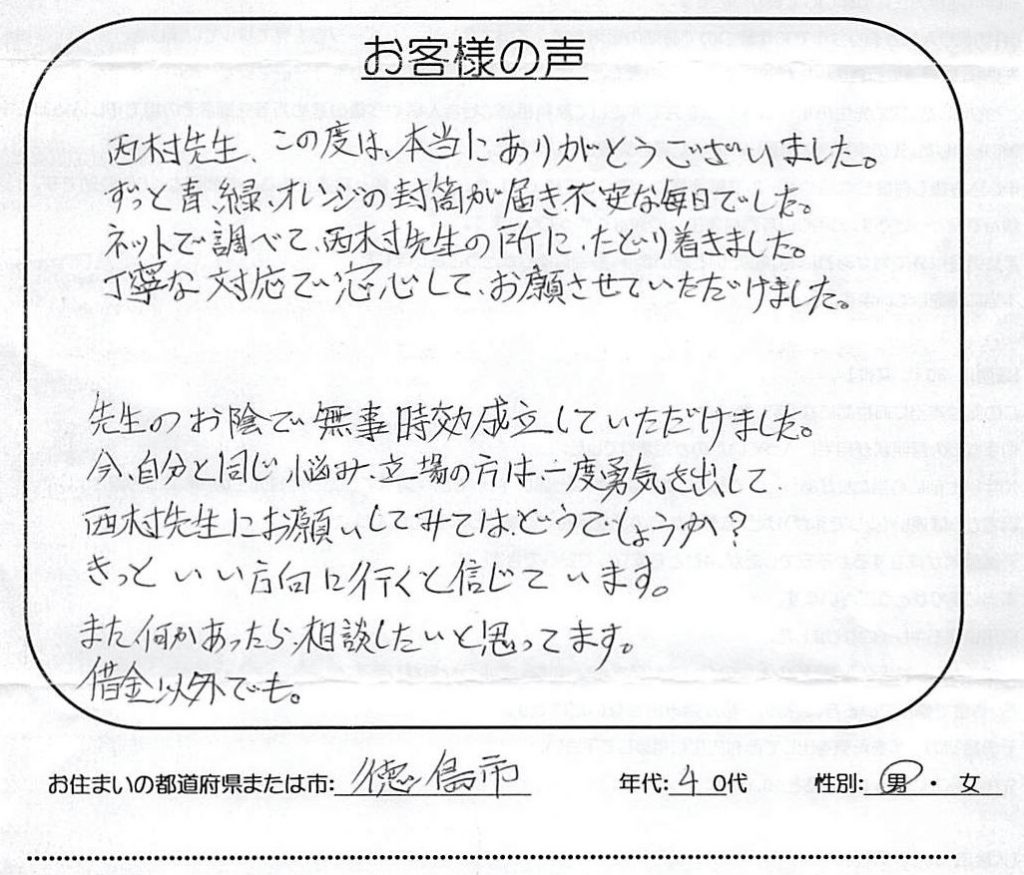 お客様の声
西村先生、この度は、本当にありがとうございました。
ずっと青、緑、オレンジの封筒が届き不安な毎日でした。
ネットで調べて、西村先生の所に、たどり着きました。
丁寧な対応で安心して、お願させていただだけました。
先生のお陰で無事時効成立していただけました。
今、自分と同じ悩み、立場の方は、一度勇気を出して
西村先生にお願いしてみてはどうでしょうか?
きっといい方向に行くと信じています。
また何かあったら、相談したいと思ってます。
借金以外でも。
お住まいの都道府県または市: 徳島市 年代: 40代 性別: 男・女